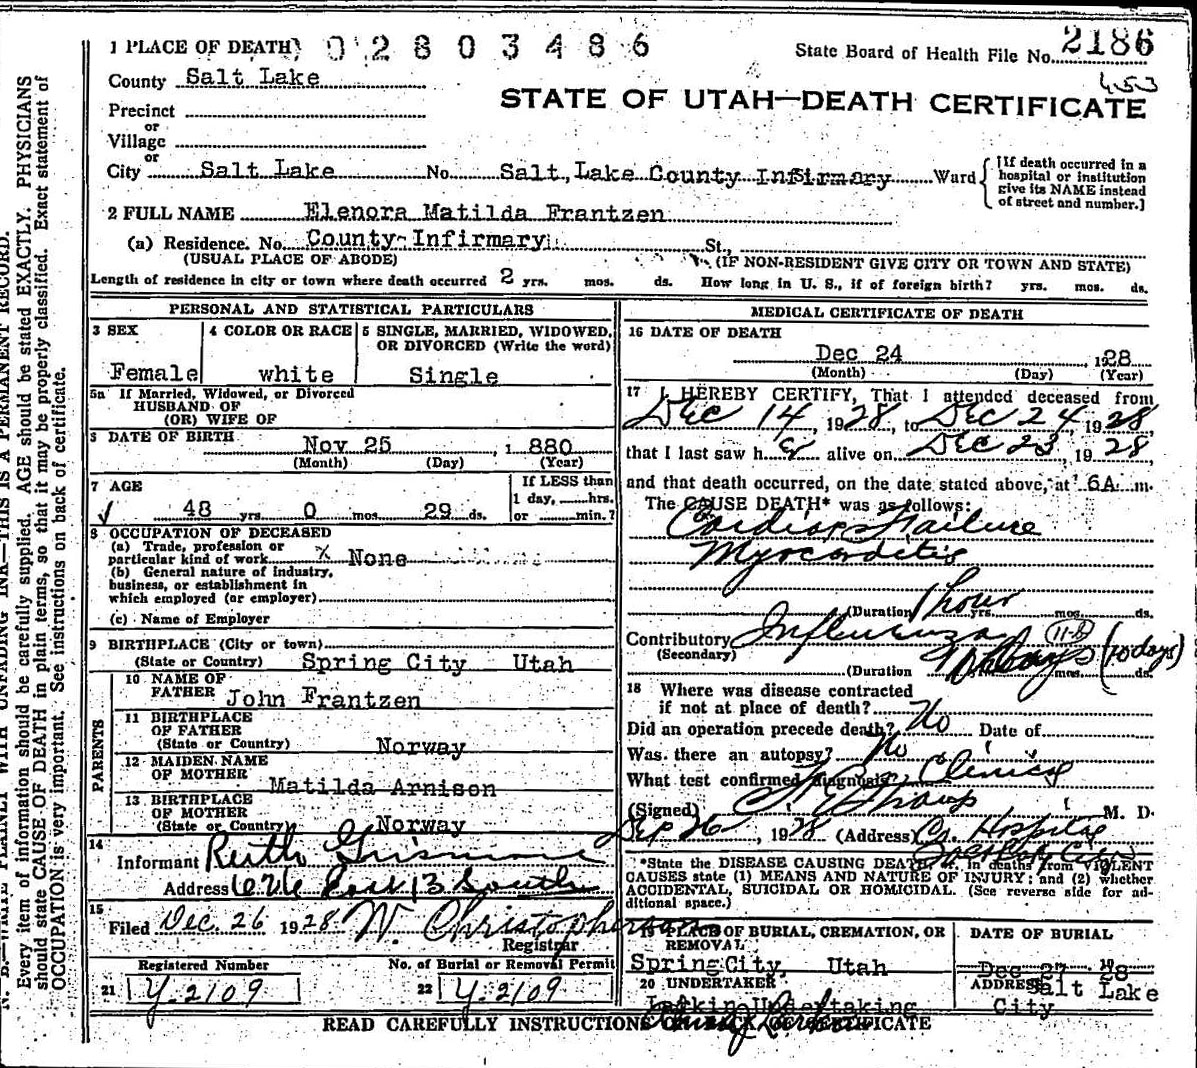 1 PLACE OF DEATH 02803486 State Board of Health File No. 2186
County Salt Lake 453
STATE OF UTAH—DEATH CERTIFICATE
Precinct
or
Village
or
City Salt Lake No. Salt Lake County Infirmary Ward {[If death occurred in a hospital or institution give its NAME instead of street and number.]
2 FULL NAME Elenora Matilda Frantzen
(a) Residence. No. County Infirmary St.,
(USUAL PLACE OF ABODE) (IF NON-RESIDENT GIVE CITY OR TOWN AND STATE)
Length of residence in city or town where death occurred 2 yrs. mos. ds. How long in U. S., if of foreign birth? yrs. mos. ds.
PERSONAL AND STATISTICAL PARTICULARS
3 SEX
Female
4 COLOR OR RACE
white
5 SINGLE, MARRIED, WIDOWED,
OR DIVORCED (Write the word)
Single
5a If Married, Widowed, or Divorced
HUSBAND OF
(OR) WIFE OF
6 DATE OF BIRTH Nov 25, 1880
(Month) (Day) (Year)
7 AGE
48 yrs. 0 mos. 29 ds.
If LESS than
1 day, hrs.
or min.?
8 OCCUPATION OF DECEASED
(a) Trade, profession or
particular kind of work X None
(b) General nature of industry,
business, or establishment in
which employed (or employer)
(c) Name of Employer
9 BIRTHPLACE (City or town)
(State or Country) Spring City Utah
PARENTS
10 NAME OF
FATHER John Frantzen
11 BIRTHPLACE
OF FATHER
(State or Country) Norway
12 MAIDEN NAME
OF MOTHER Matilda Arnison
13 BIRTHPLACE
OF MOTHER
(State or Country) Norway
14
Informant Ruth
Address 626 East 13 South
15
Filed Dec. 26 1928 W. Christopherson
Registrar
Registered Number No. of Burial or Removal Permit
21 Y-2109 22 Y-2109
MEDICAL CERTIFICATE OF DEATH
16 DATE OF DEATH
Dec 24 1928
(Month) (Day) (Year)
17 I HEREBY CERTIFY, That I attended deceased from
Dec 14, 1928, to Dec 24 1928,
that I last saw h alive on Dec 23, 1928,
and that death occurred, on the date stated above, at 6A m.
The CAUSE DEATH* was as follows:
Failure
Myocarditis
(Duration 1 hour yrs. mos. ds.
Contributory Influenza 11-B
(Secondary)
(Duration 10 days mos. ds. (10 days)
18 Where was disease contracted
if not at place of death?
Did an operation precede death? No Date of
Was there an autopsy? No
What test confirmed diagnosis? Clinical
(Signed) M. D.
Sep 26, 1928 (Address) Co. Hospital
*State the DISEASE CAUSING DEATH, or, in deaths from VIOLENT
CAUSES state (1) MEANS AND NATURE OF INJURY; and (2) whether
ACCIDENTAL, SUICIDAL OR HOMICIDAL. (See reverse side for ad-
ditional space.)
19 PLACE OF BURIAL, CREMATION, OR
REMOVAL
Spring City, Utah
DATE OF BURIAL
Dec 27 1928
20 UNDERTAKER
Larkin Undertaking
ADDRESS Salt Lake
City
READ CAREFULLY INSTRUCTIONS ON BACK OF CERTIFICATE
N. B.—WRITE PLAINLY WITH UNFADING INK—THIS IS A PERMANENT RECORD.
Every item of information should be carefully supplied. AGE should be stated EXACTLY. PHYSICIANS
should state CAUSE OF DEATH in plain terms, so that it may be properly classified. Exact statement of
OCCUPATION is very important. See instructions on back of certificate.